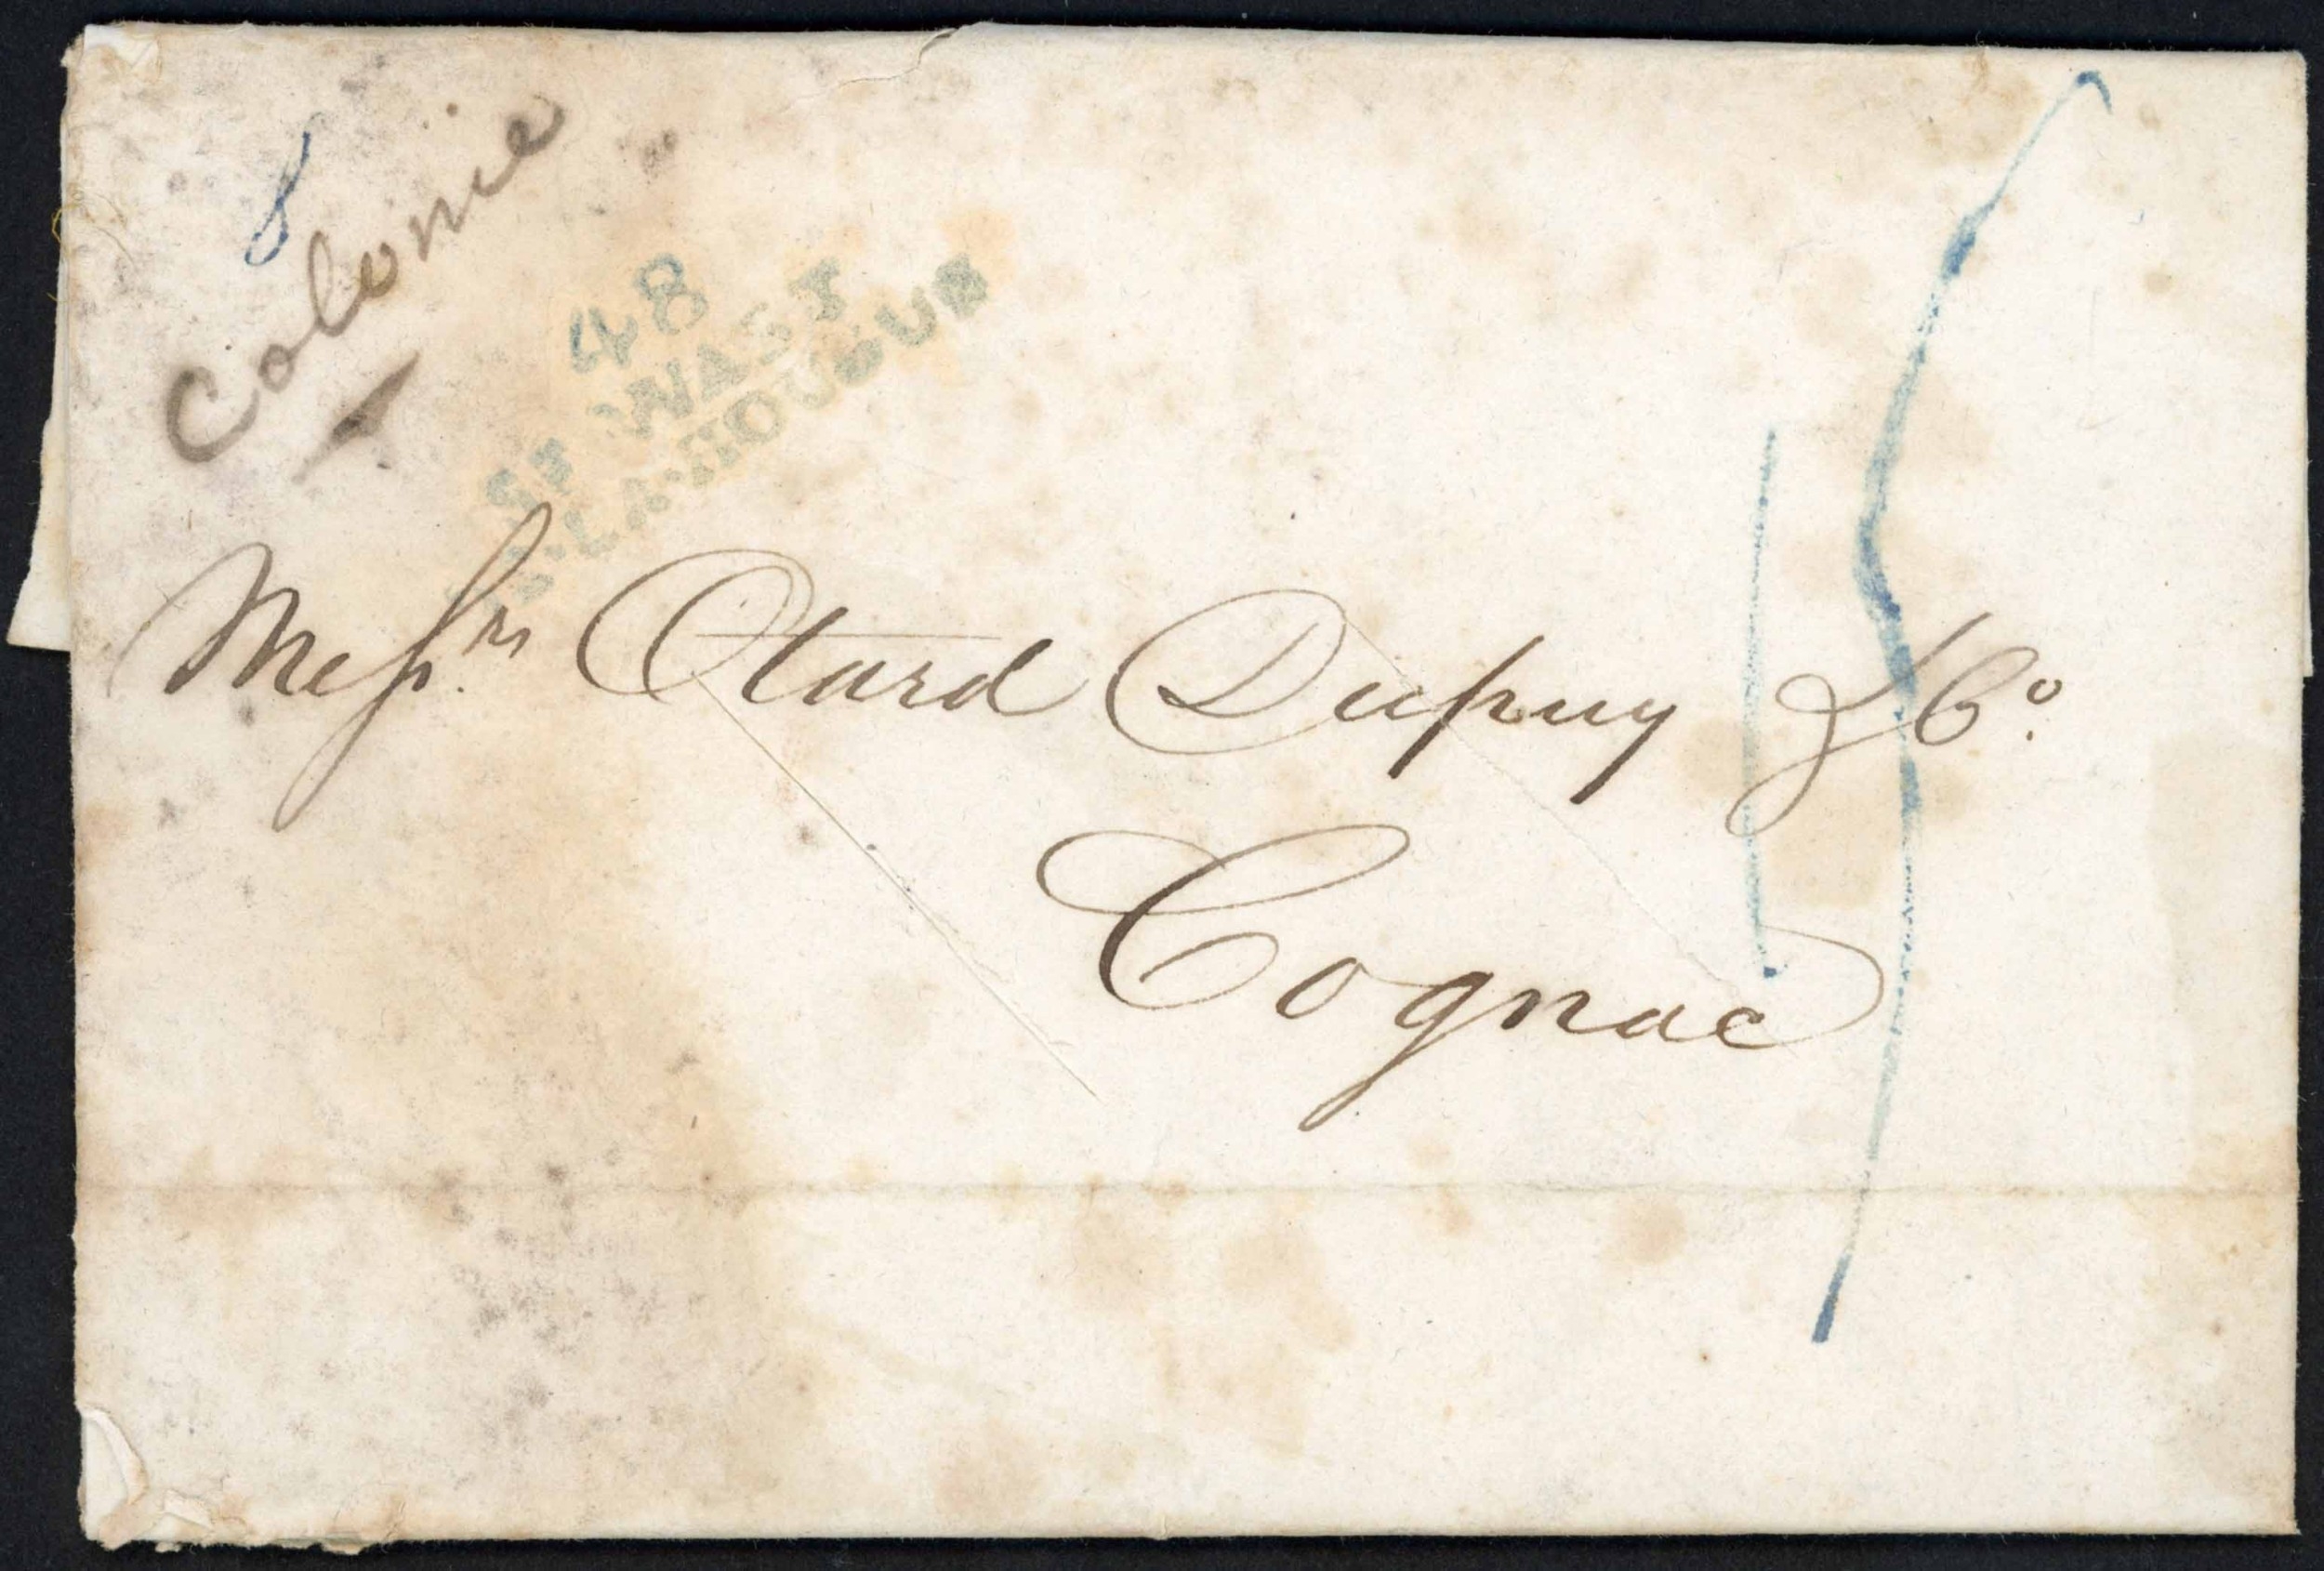 8
Colonie
48
ST WAST
LA-HOUGUE
Messrs. Otard Dupuy & Co.
Cognac
15